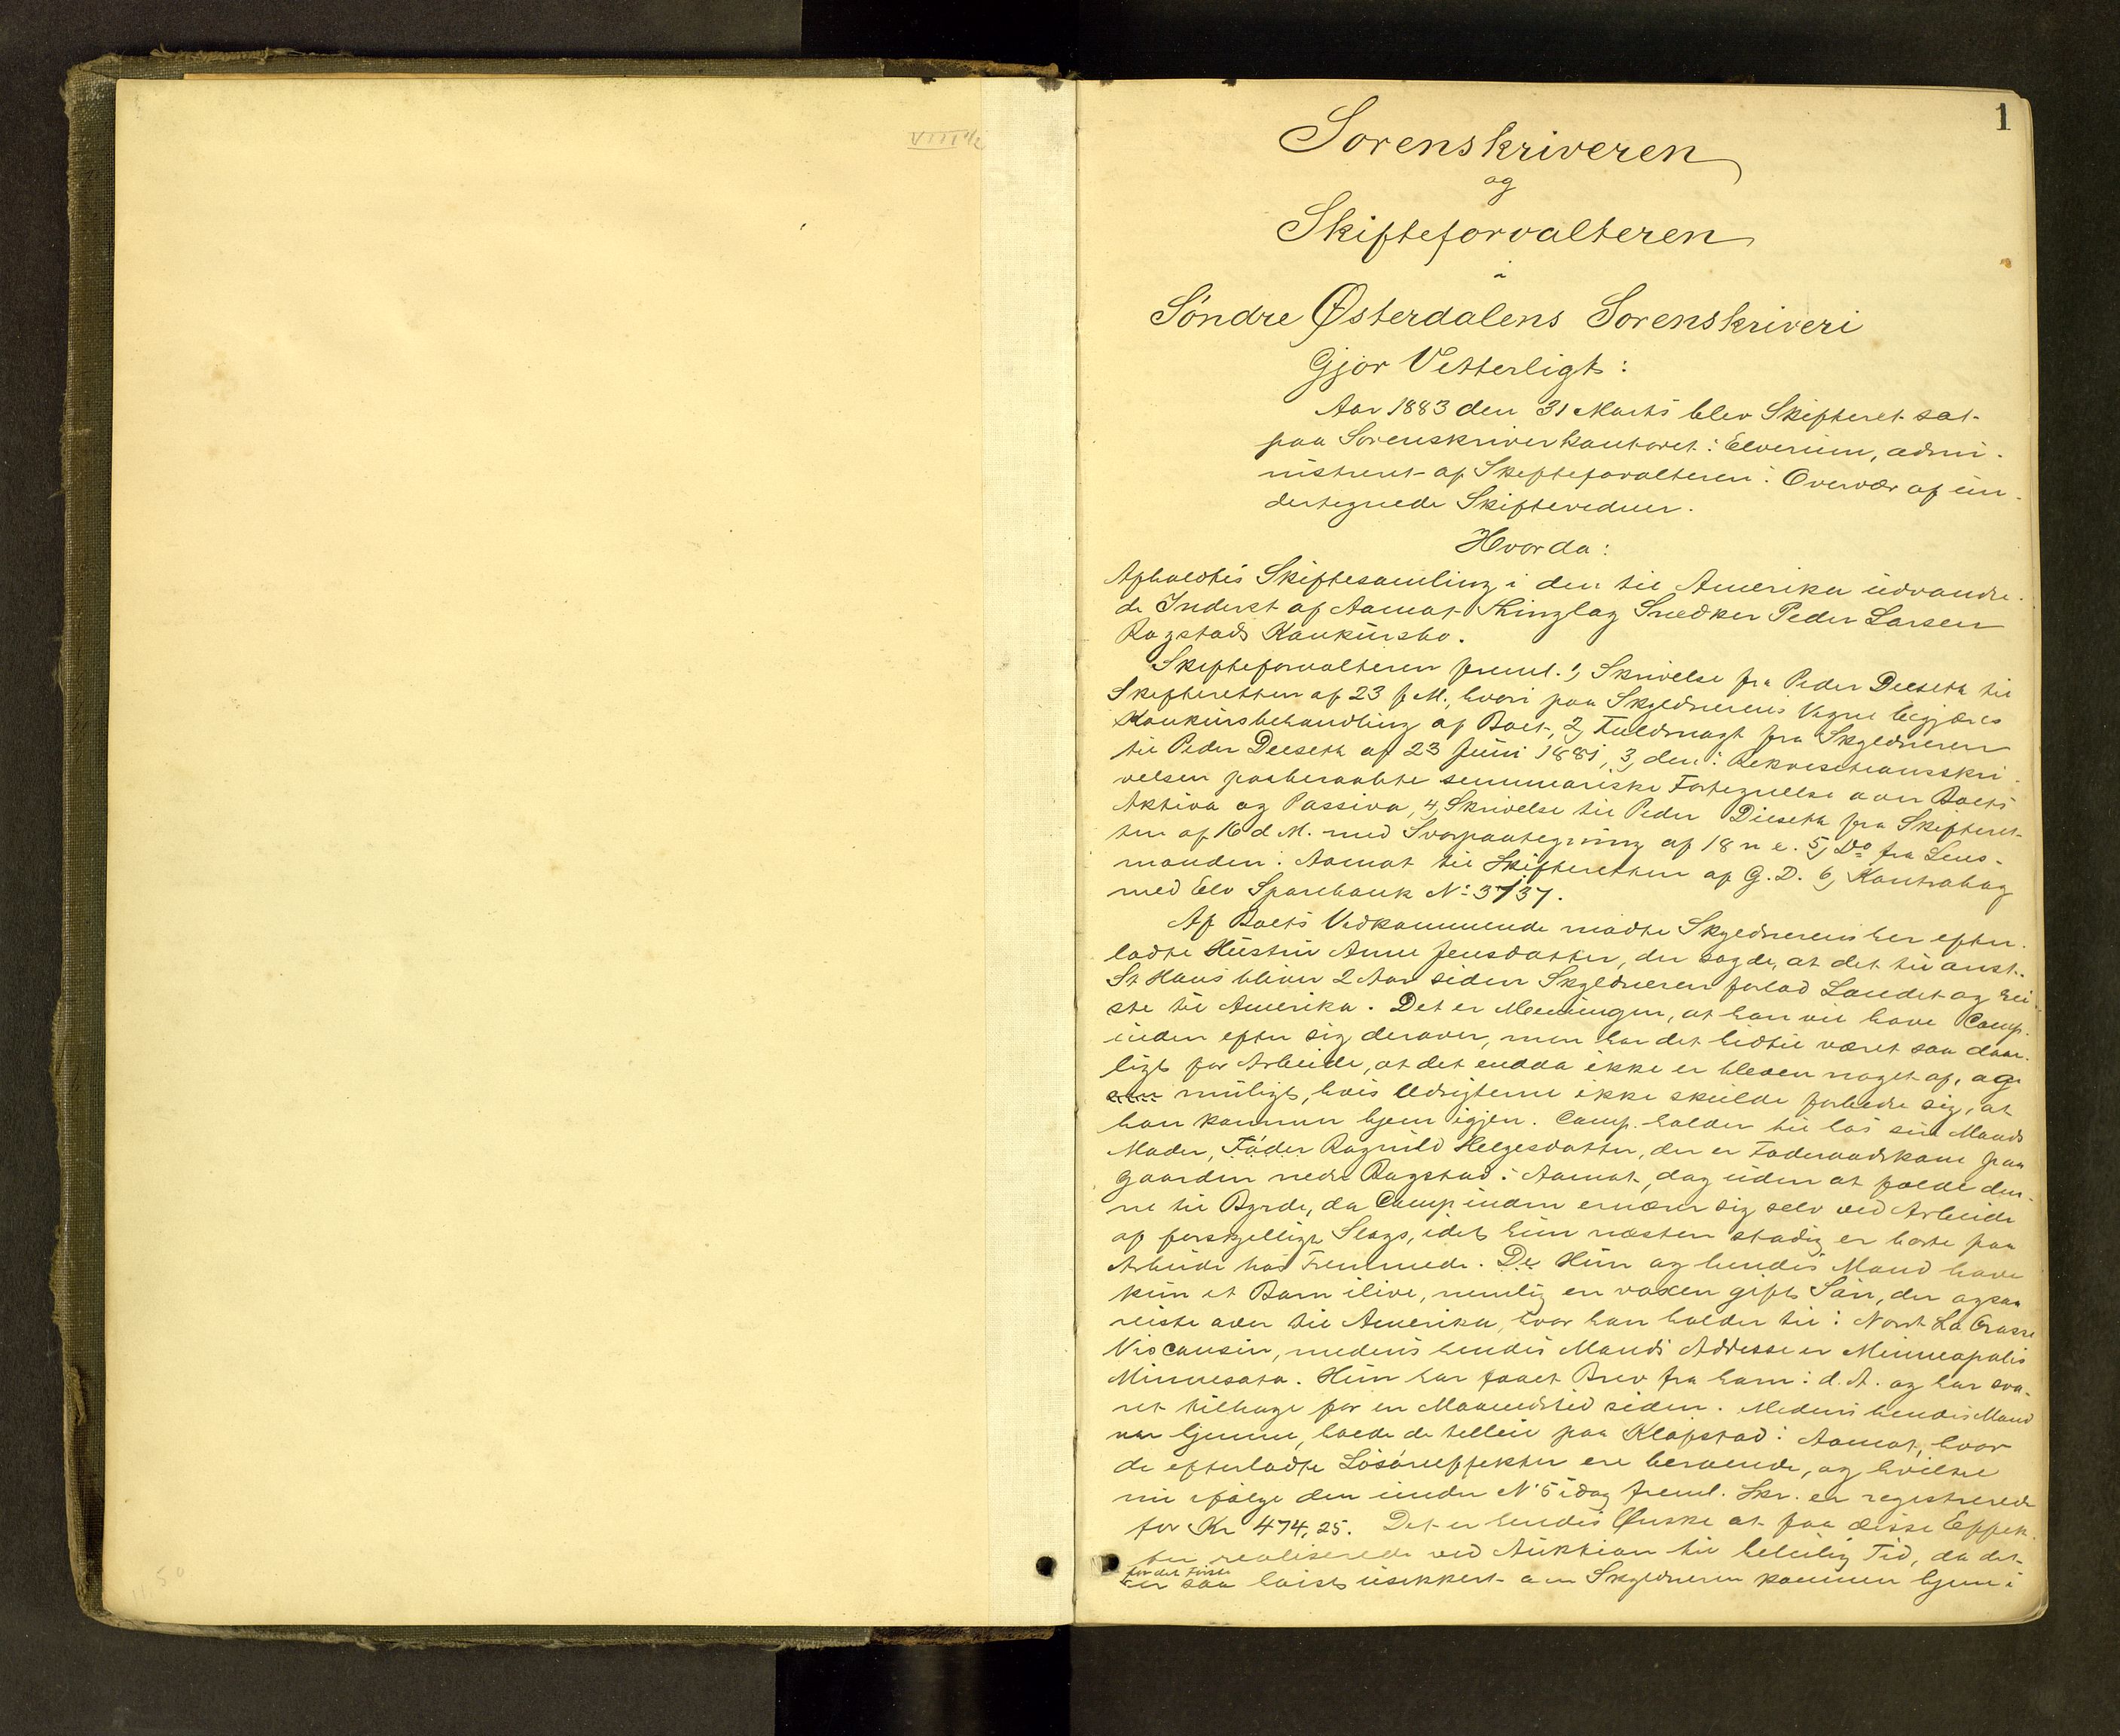 1
Sorenskriveren
og
Skifteforvalteren
i
Söndre Østerdalens Sorenskriveri
Gjör Vitterligt:
Aar 1883 den 31 Marts blev Skifteret sat
paa Sorenskriverkontoret i Elverum, admi-
nistreret af Skifteforvalteren i Overvær af un-
dertegnede Skiftevidner.
Hvorda:
Afholdtes Skiftesamling i den til Amerika udvandre-
de Inderst af Aamot Thinglag Snedker Peder Larsen
Rogstads Konkursbo.
Skifteforvalteren freml. 1, Skrivelse fra Peder Deeseth til
Skifteretten af 23 f M., hvori paa Skyldnerens Vegne begjæres
Konkursbehandling af Boet, 2, Fuldmagt fra Skyldneren
til Peder Deeseth af 23 Juni 1881, 3, den i Rekvisitionsskri-
velsen paaberaabte summariske Fortegnelse over Boets
Aktiva og Passiva, 4, Skrivelse til Peder Deeseth fra Skifteret-
ten af 16 d M. med Svarpaategning af 18 n e. 5, Do fra Lens-
manden i Aamot til Skifteretten af G. D. 6, Kontrabog
med Elv Sparebank No 3737.
Af Boets Vedkommende mödte Skyldnerens her efter-
ladte Hustru Anne Jensdatter, der sagde, at det til anst.
St Hans bliver 2 Aar siden Skyldneren forlod Landet og rei-
ste til Amerika. Det er Meningen, at han vil have Comp.
inden efter sig derover, men har det hidtil været saa daar-
ligt for Arbeide, at det endda ikke er bleven noget af, og
muligt, hvis Udsigterne ikke skulde forbedre sig, at
han kommer hjem igjen. Comp. holder til hos sin Mands
Moder, Föder Ragnild Helgesdatter, der er Foderaadskone paa
Gaarden nedre Rogstad i Aamot, dog uden at falde den-
ne til Byrde, da Comp inden ernærer sig selv ved Arbeide
af forskjellige Slags, idet hun næsten stadig er borte paa
Arbeide hos Fremmede. De Hun og hendes Mand have
kun et Barn ilive, nemlig en voxen gift Sön, der ogsaa
reiste over til Amerika, hvor han holder til i North La Crosse
Visconsin, medens hendes Mands Addresse er Minneapolis
Minnesota. Hun har faaet Brev fra ham i d. A. og har sva-
ret tilbage for en Maanedstid siden. Medens hendes Mand
var hjemme, boede de tilleie paa Klöfstad i Aamot, hvor
de efterladte Lösöreeffekter ere beroende, og hvilke
nu ifölge den under No 5 idag freml. Skr. er registrerede
for Kr 474,25. Det er hendes Ønske at faa disse Effek-
ter realiserede ved Auktion til beleilig Tid, da det
for det Förste
er saa höist usikkert om Skyldneren kommer hjem i